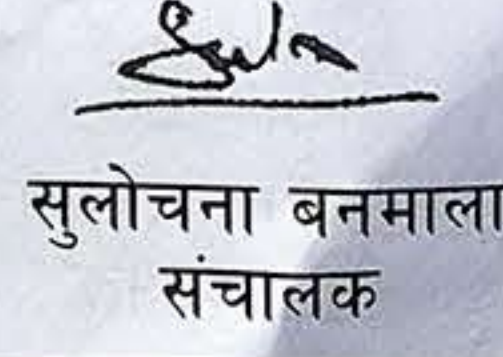 सुलोचना बनमाला
संचालक